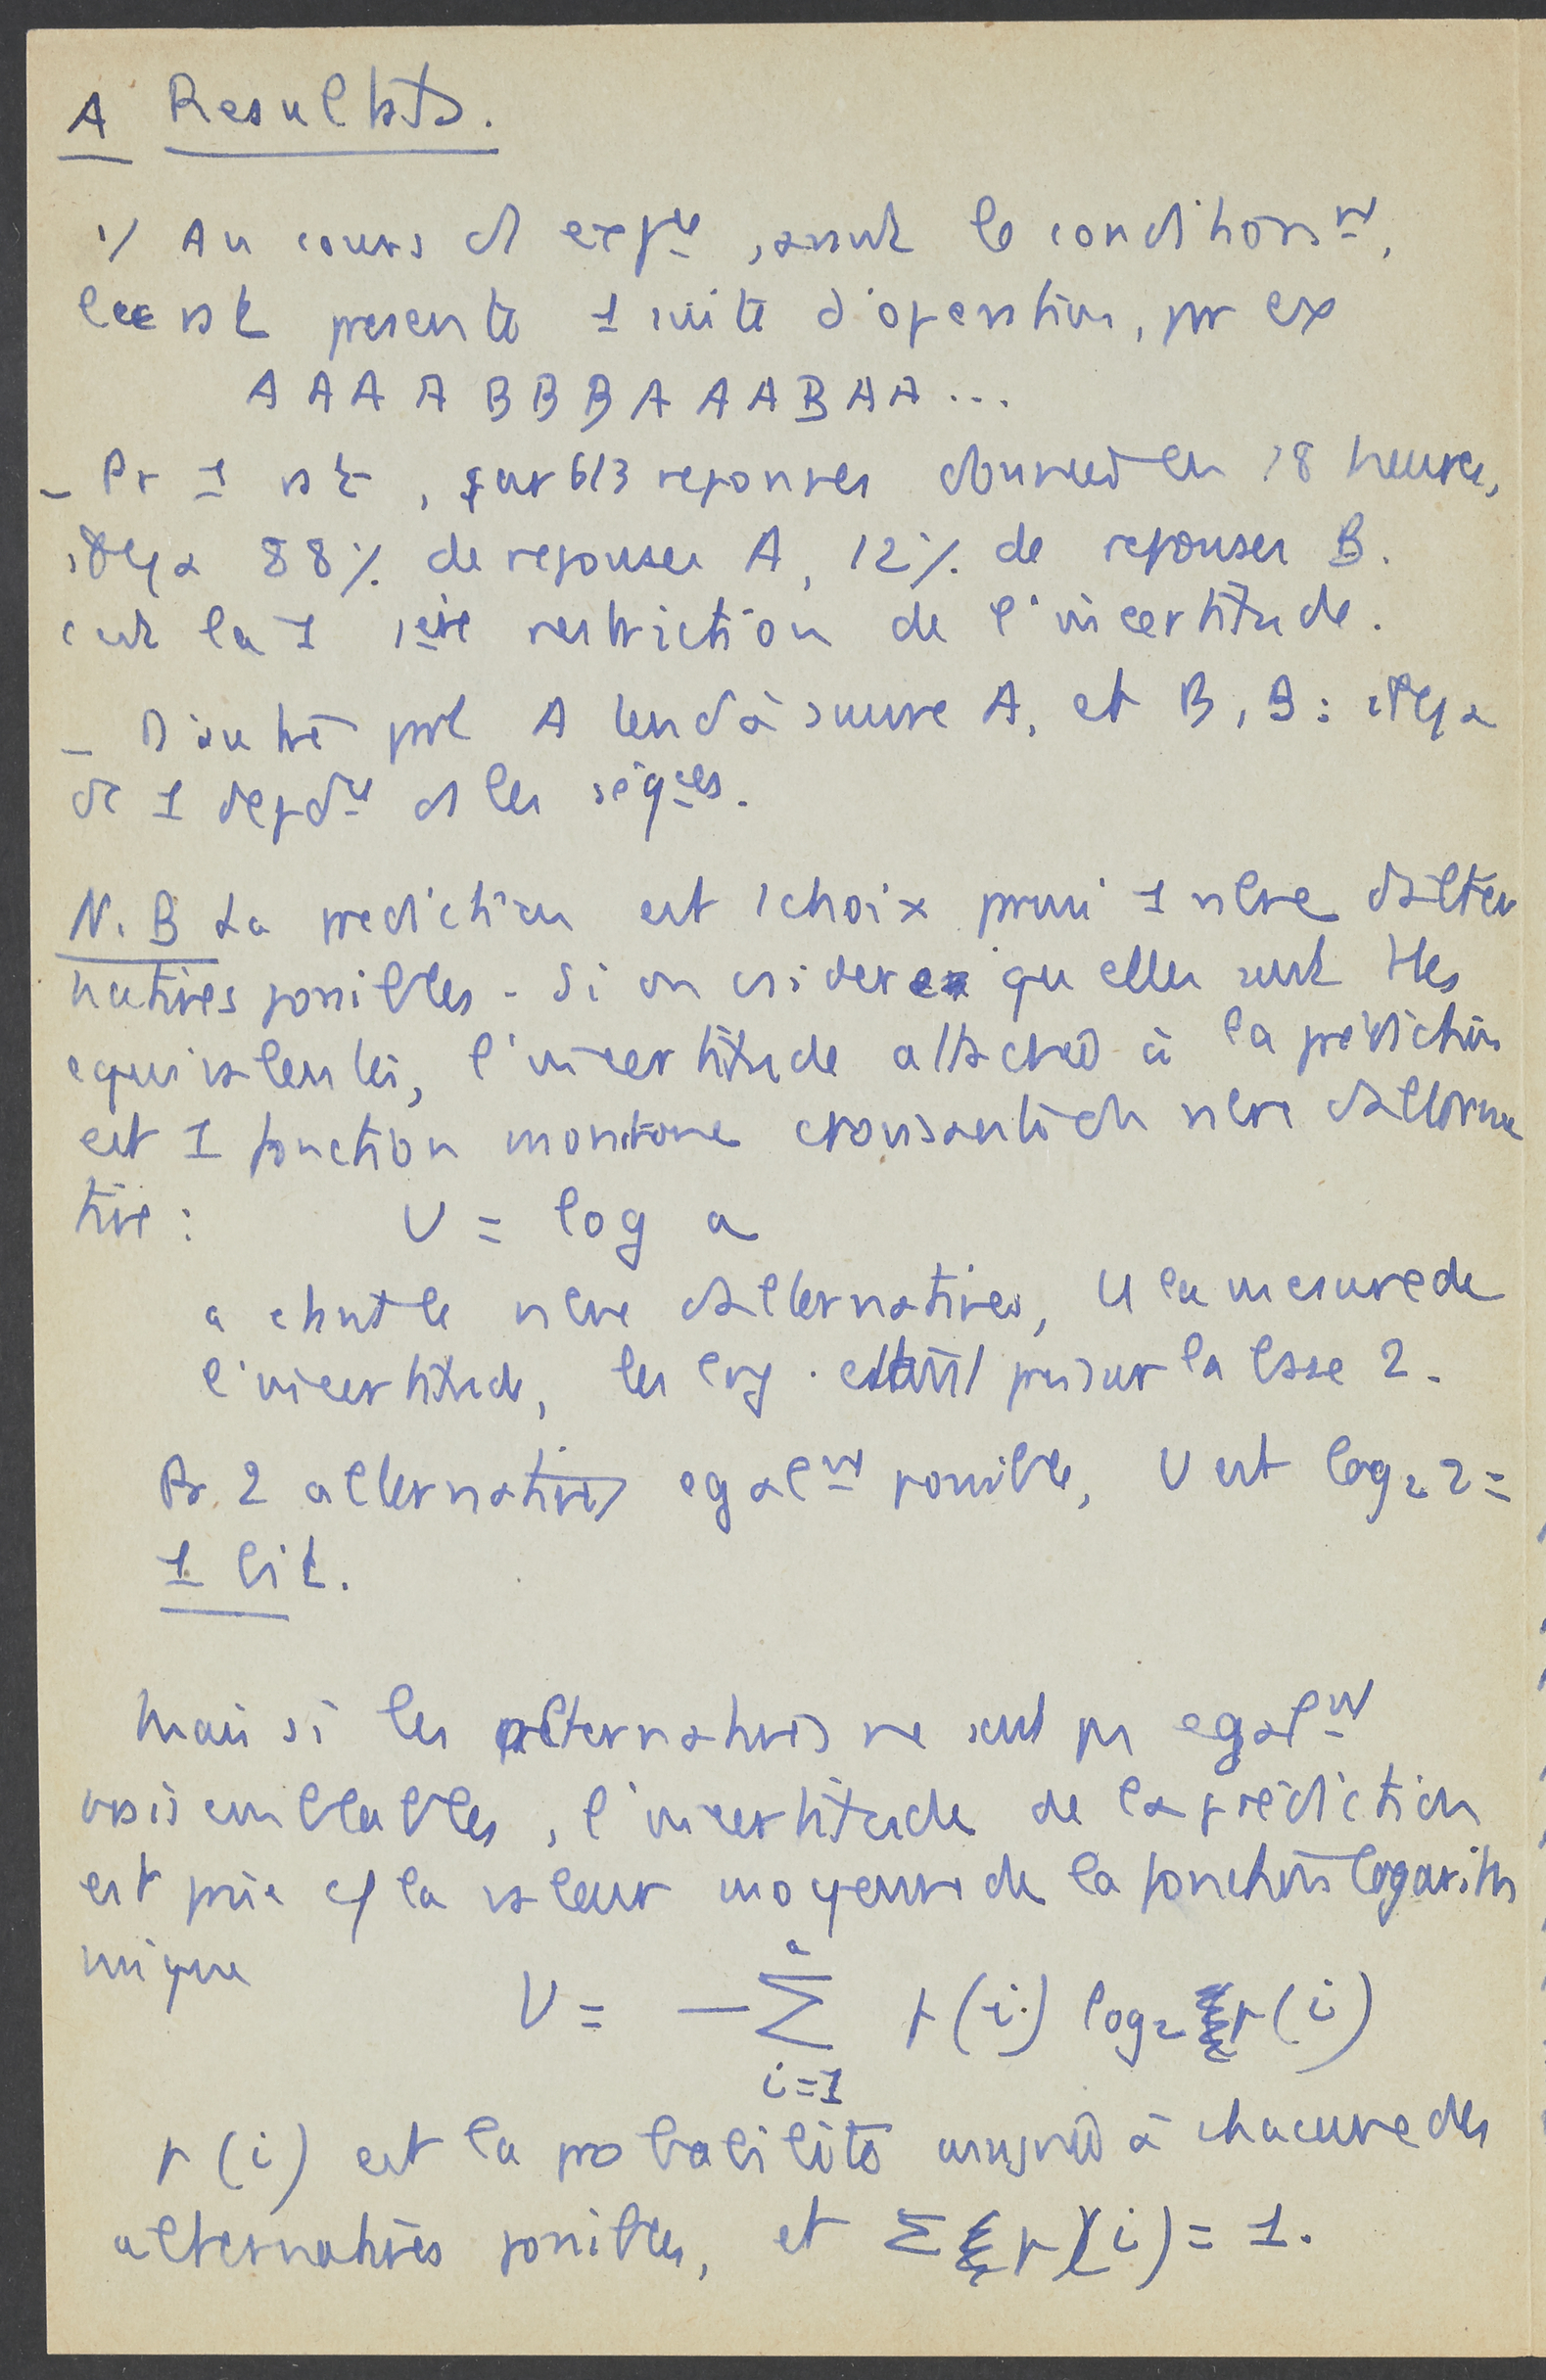 A Resultats.
1/ Au cours d expce, avant le conditionnt,
le rat presente 1 suite d'operations, pr ex
A A A A B B B A A A B A A ...
- Pr 1 rat, sur 613 reponses données en 18 heures,
il y a 88 % de reponses A, 12 % de reponses B.
c'est la 1 1ere restriction de l'incertitude.
- D'autre A tend à suivre A, et B, B : il y a
dc 1 depdce ds les séqces.
N.B La prediction est 1 choix parmi 1 nbre d'alter
natives possibles - Si on csidere qu elles sont ttes
equivalentes, l'incertitude attachée à la prédiction
est 1 fonction monotone croissante du nbre d'alterna
tive :
U = log a
a etant le nbre d'alternatives, U la mesure de
l'incertitude, les log. étant pris sur la base 2.
Pr 2 alternatives egalnt possibles, U est log2 2 =
1 bit.
Mais si les alternatives ne sont pas egalnt
vraisemblables, l'incertitude de la prédiction
est prise cf la valeur moyenne de la fonction logarith
mique
U = - a ∑ i=1 p(i) log2 p(i)
p(i) est la probabilité assignée à chacune des
alternatives possibles, et Σ p(i) = 1.